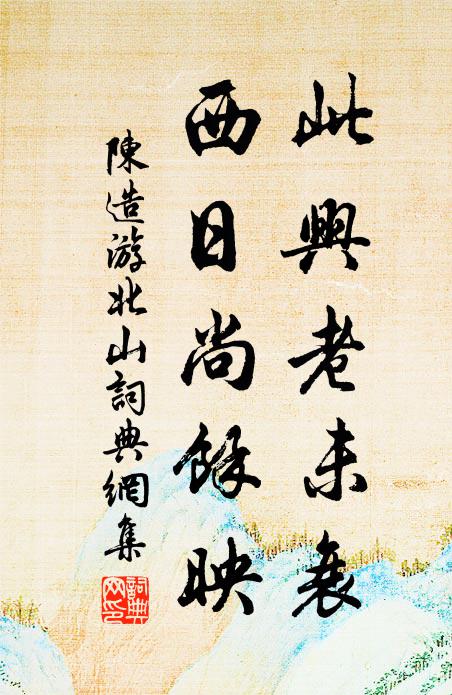 此興老未衰
西日尚餘映
陳造游北山詞典網集
詞典網印